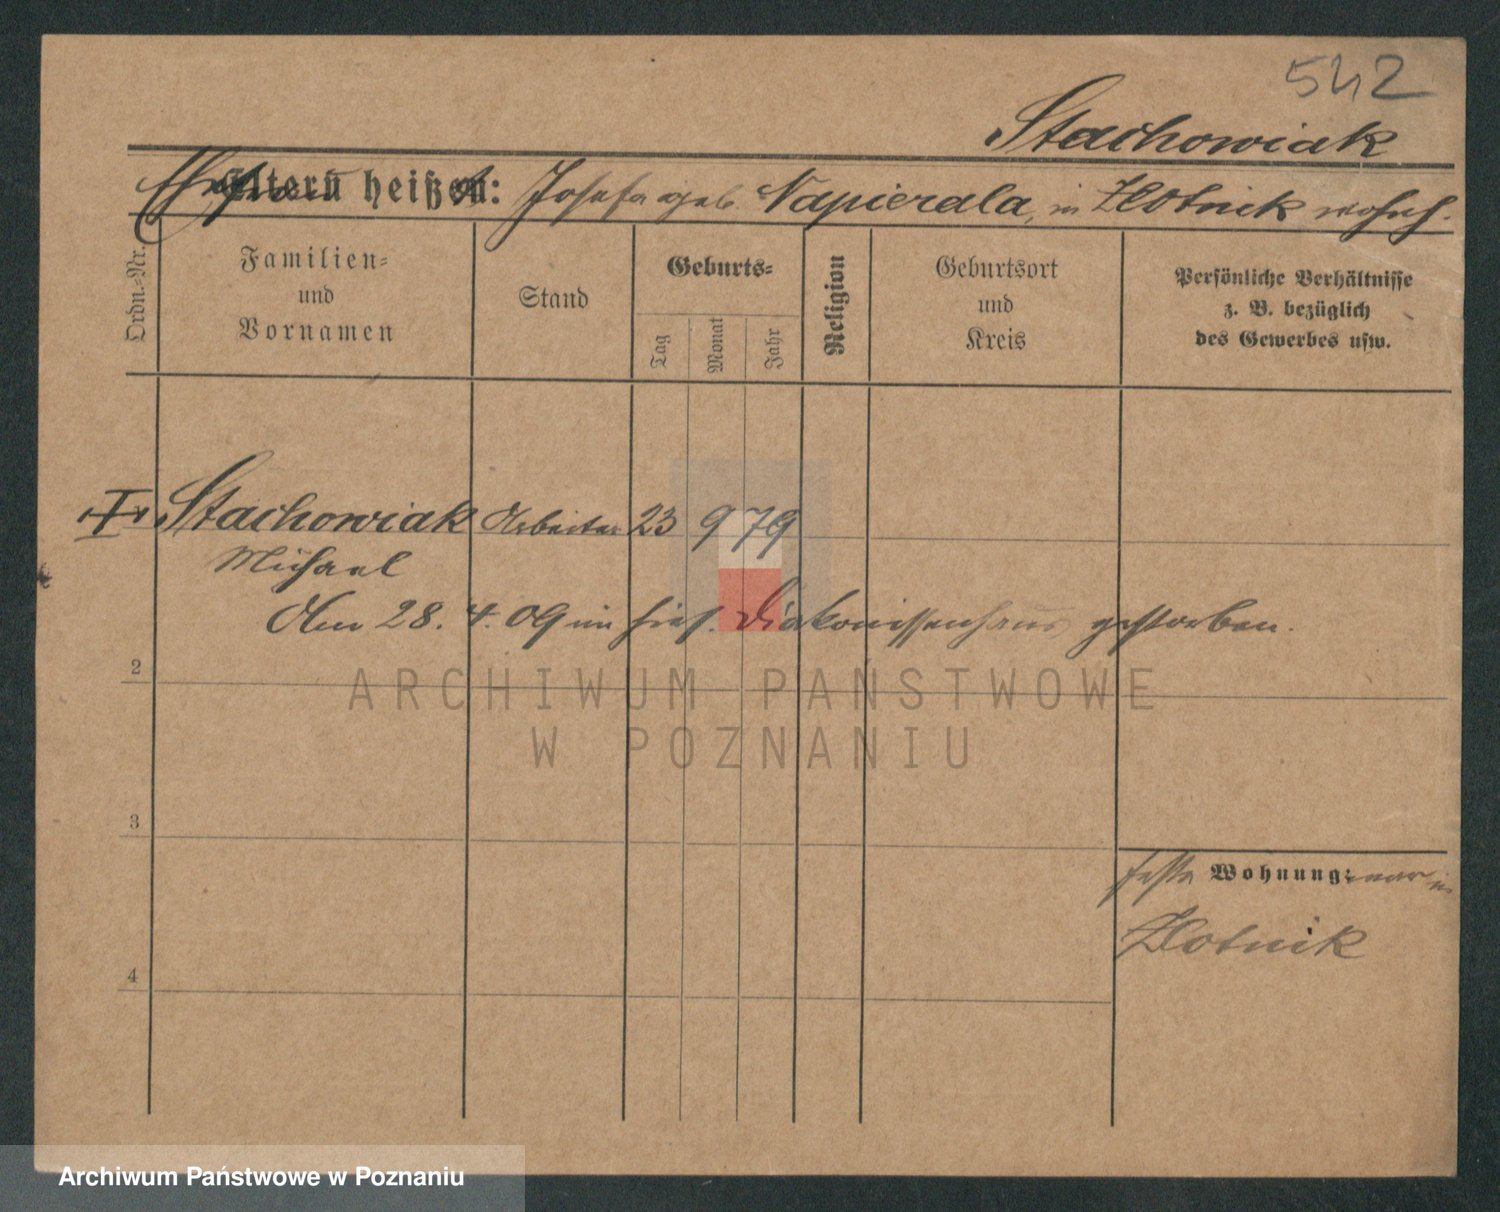 542
Stachowiak
Ehefrau Eltern heißen: Josefa geb. Napierala, in Zlotnik wohnh.
Ordn.-Nr.
Familien-
und
Vornamen
Stand
Geburts-
Tag
Monat
Jahr
Religion
Geburtsort
und
Kreis
Persönliche Verhältnisse
z. B. bezüglich
des Gewerbes usw.
Stachowiak Arbeiter 23 9 79
Michael
Am 28. 4. 09 im hies. Diakonissenhaus gestorben.
2
ARCHIWUM PAŃSTWOWE
W POZNANIU
3
feste Wohnung: war in
Zlotnik
4
Archiwum Państwowe w Poznaniu